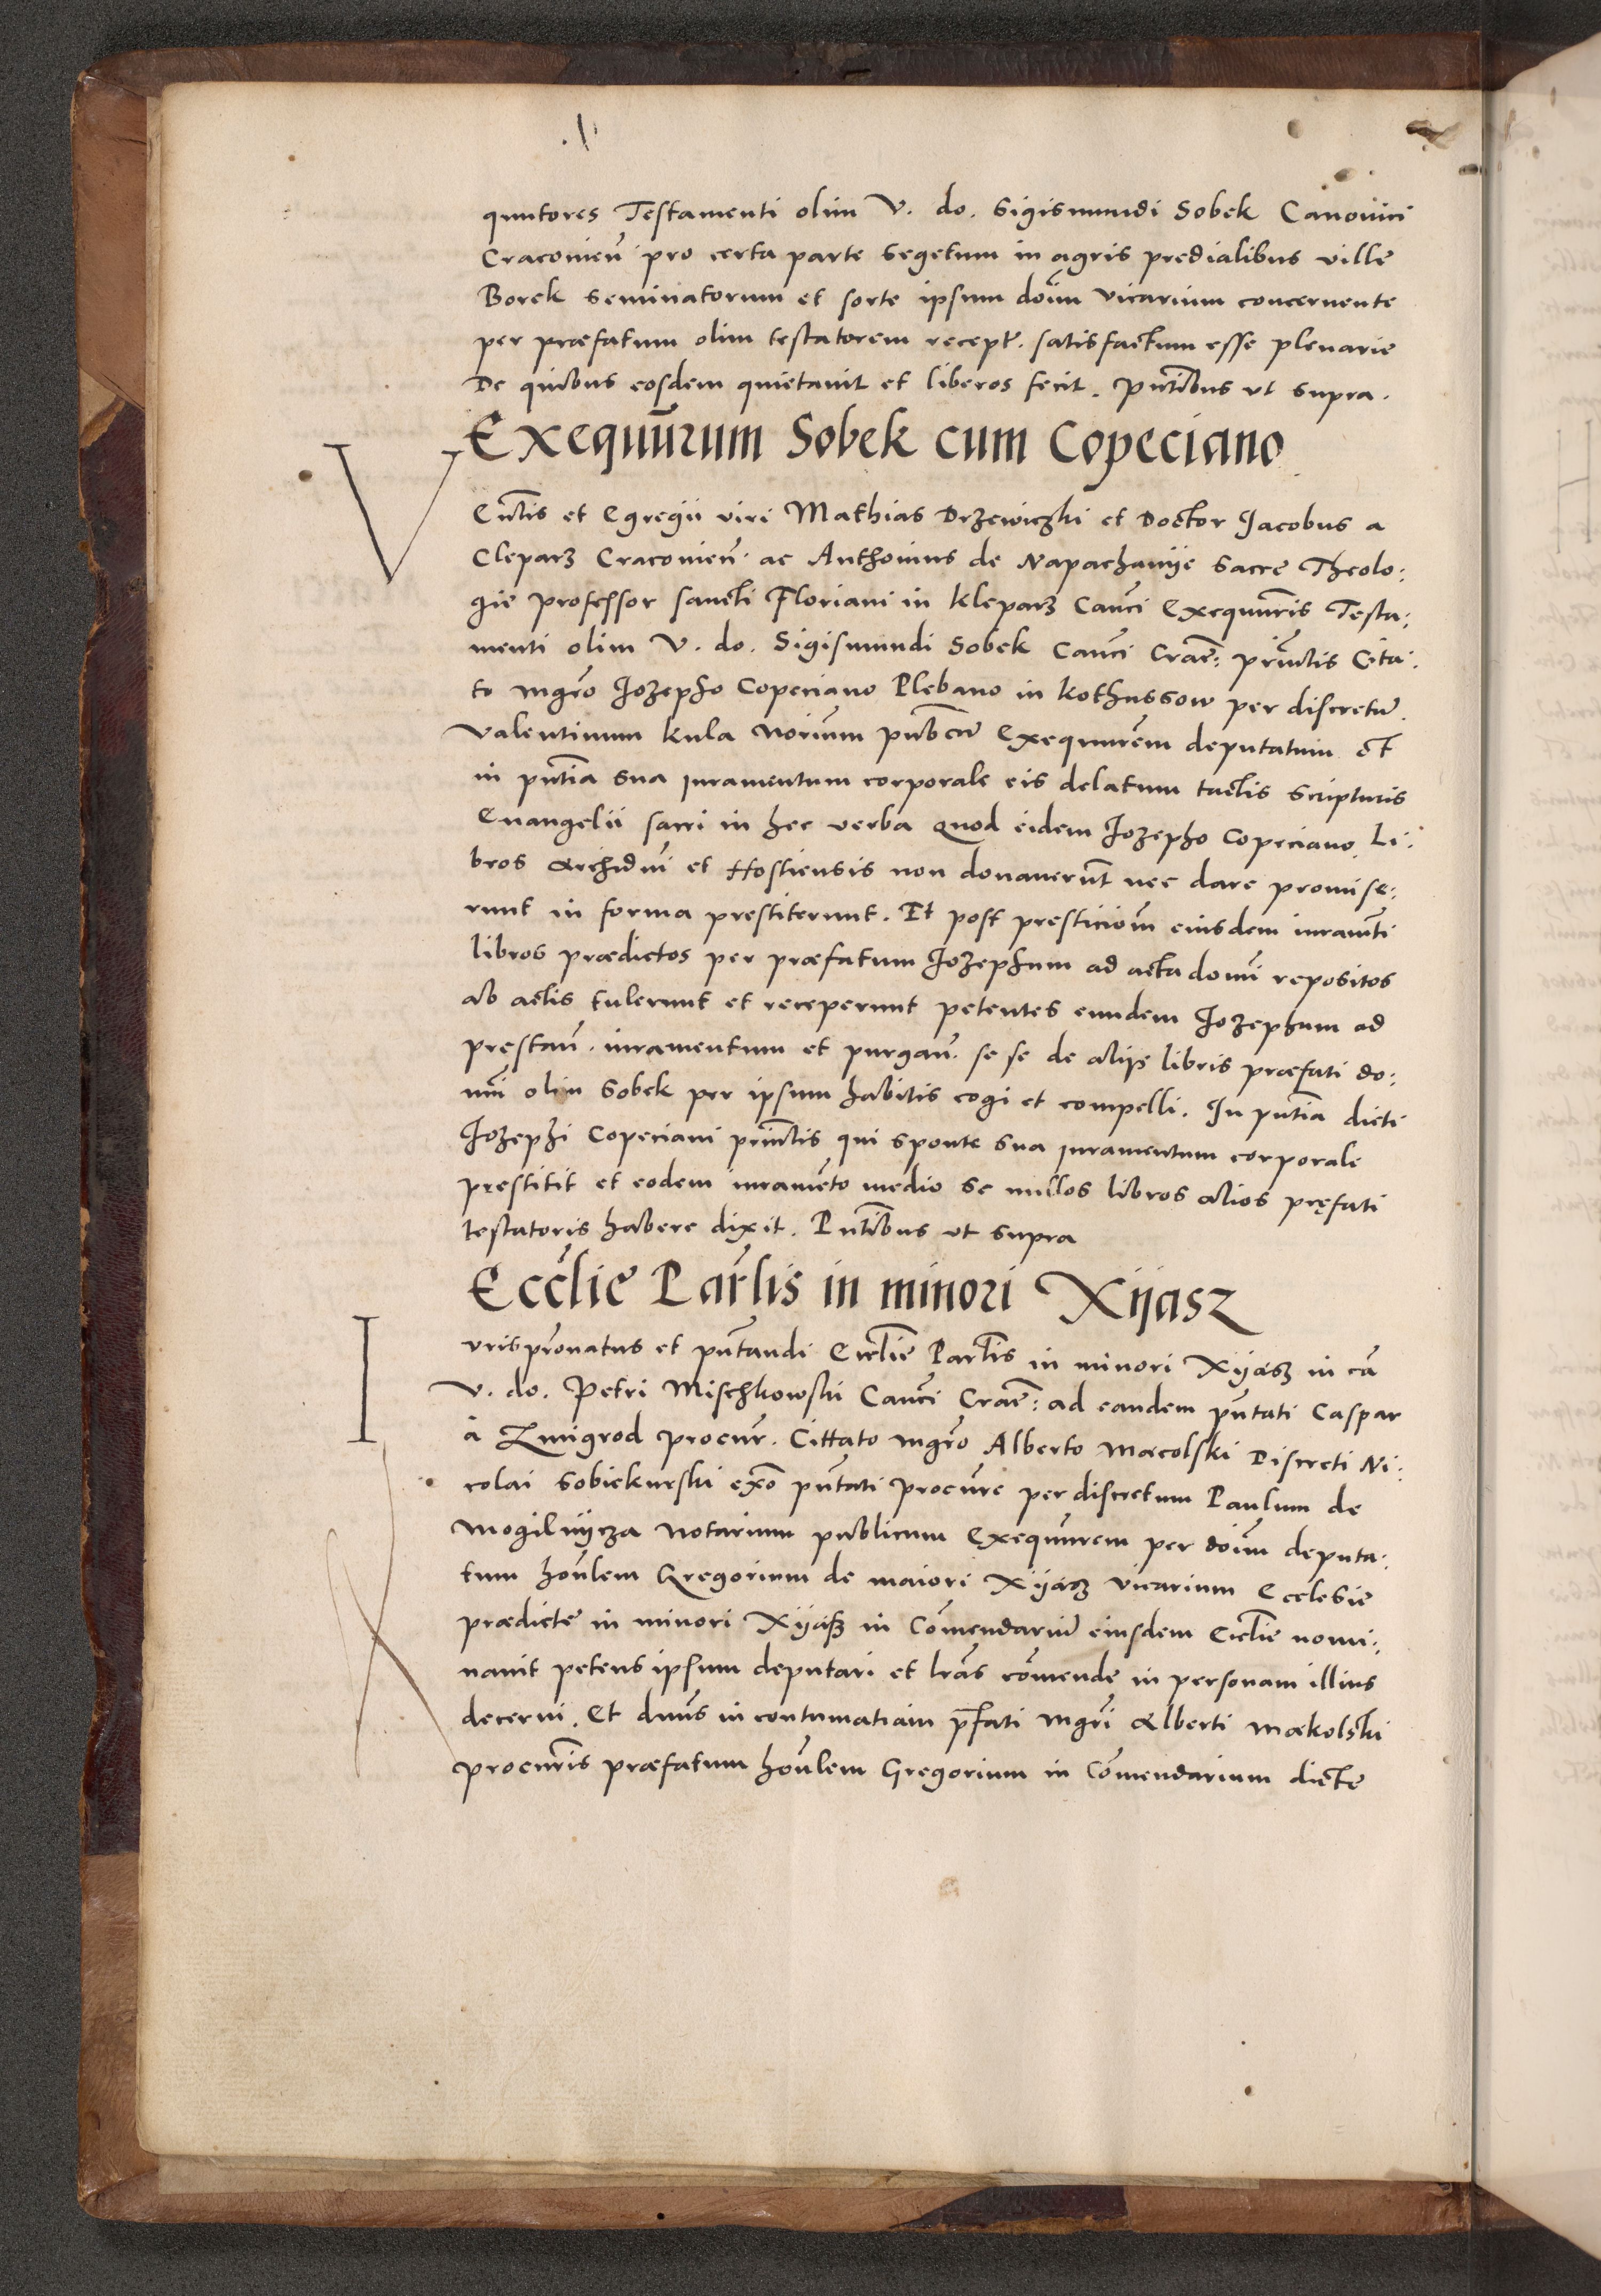 quutores Testamenti olim V. do. Sigismundi Sobek Canonici
Craconieñ pro certa parte segetum in agris predialibus ville
Borek seminatorum et sorte ipsum doim̄ vicarium concernente
per præfatum olim testatorem recept̄. satisfactum esse plenarie
De quibus eosdem quietauit et liberos fecit. Pñtibus vt supra.
Exequūrum Sobek cum Copeciano
VEñlis et Egregii viri Mathias Drzewiczki et Doctor Jacobus a
Cleparz Craconieñ. ac Anthonius de Napachanije Sacre Theolo:
gie professor sancti Floriani in Kleparz Canci Exequūris Testa:
menti olim V. do. Sigismundi Sobek Canci Crac̄: prīnctis Cita:
to mgrō Jozepho Copeciano Plebano in Kothussow per discretū
Valentinum Kula Norium pubcū Exequūrem deputatum et
in pñtia sua juramentum corporale eis delatum tactis scripturis
Euangelii sacri in hec verba Quod eidem Jozepho Copeciano Li:
bros Archidni et Hostiensis non donauerūt nec dare promise:
runt in forma prestiterunt. Et post presticiom̄ eiusdem iuramti
libros prædictos per præfatum Jozephum ad acta domī repositos
ab actis tulerunt et receperunt petentes eundem Jozephum ad
prestañ. iuramentum et purgañ. se se de alijs libris præfati do:
mī olim Sobek per ipsum habitis cogi et compelli. In pñtia dicti
Jozephi Copeciani prīnctis qui sponte sua juramentum corporale
prestitit et eodem iuramēto medio se nullos libros alios pręfati
testatoris habere dixit. Pñtibus vt supra
Eccl̄ie Par̄lis in minori Xijasz
Iurispr̄onatus et pñtandi Ecc̄lie Par̄lis in minori Xijąsz in cā
V. do. Petri Mischkowski Canci Crac̄: ad eandem pñtati Caspar
à Zmigrod procur̄. Cittato mgrō Alberto Mæcolski Discreti Ni:
colai Sobiekurski exō pñtati Procur̄e per discretum Paulum de
Mogilnijcza Notarium publicum Exequūrem per doim̄ deputa:
tum hon̄lem Gregorium de maiori Xijąsz vicarium Ecclesie
prædicte in minori Xijąsz in Cōmendariū eiusdem Ecc̄lie nomi:
nauit petens ipsum deputari et l̄ras cōmende in personam illius
decerni. Et dnūs in contumatiam p̄fati mgrī Alberti Mækolski
procur̄is præfatum hon̄lem Gregorium in Cōmendarium dicte